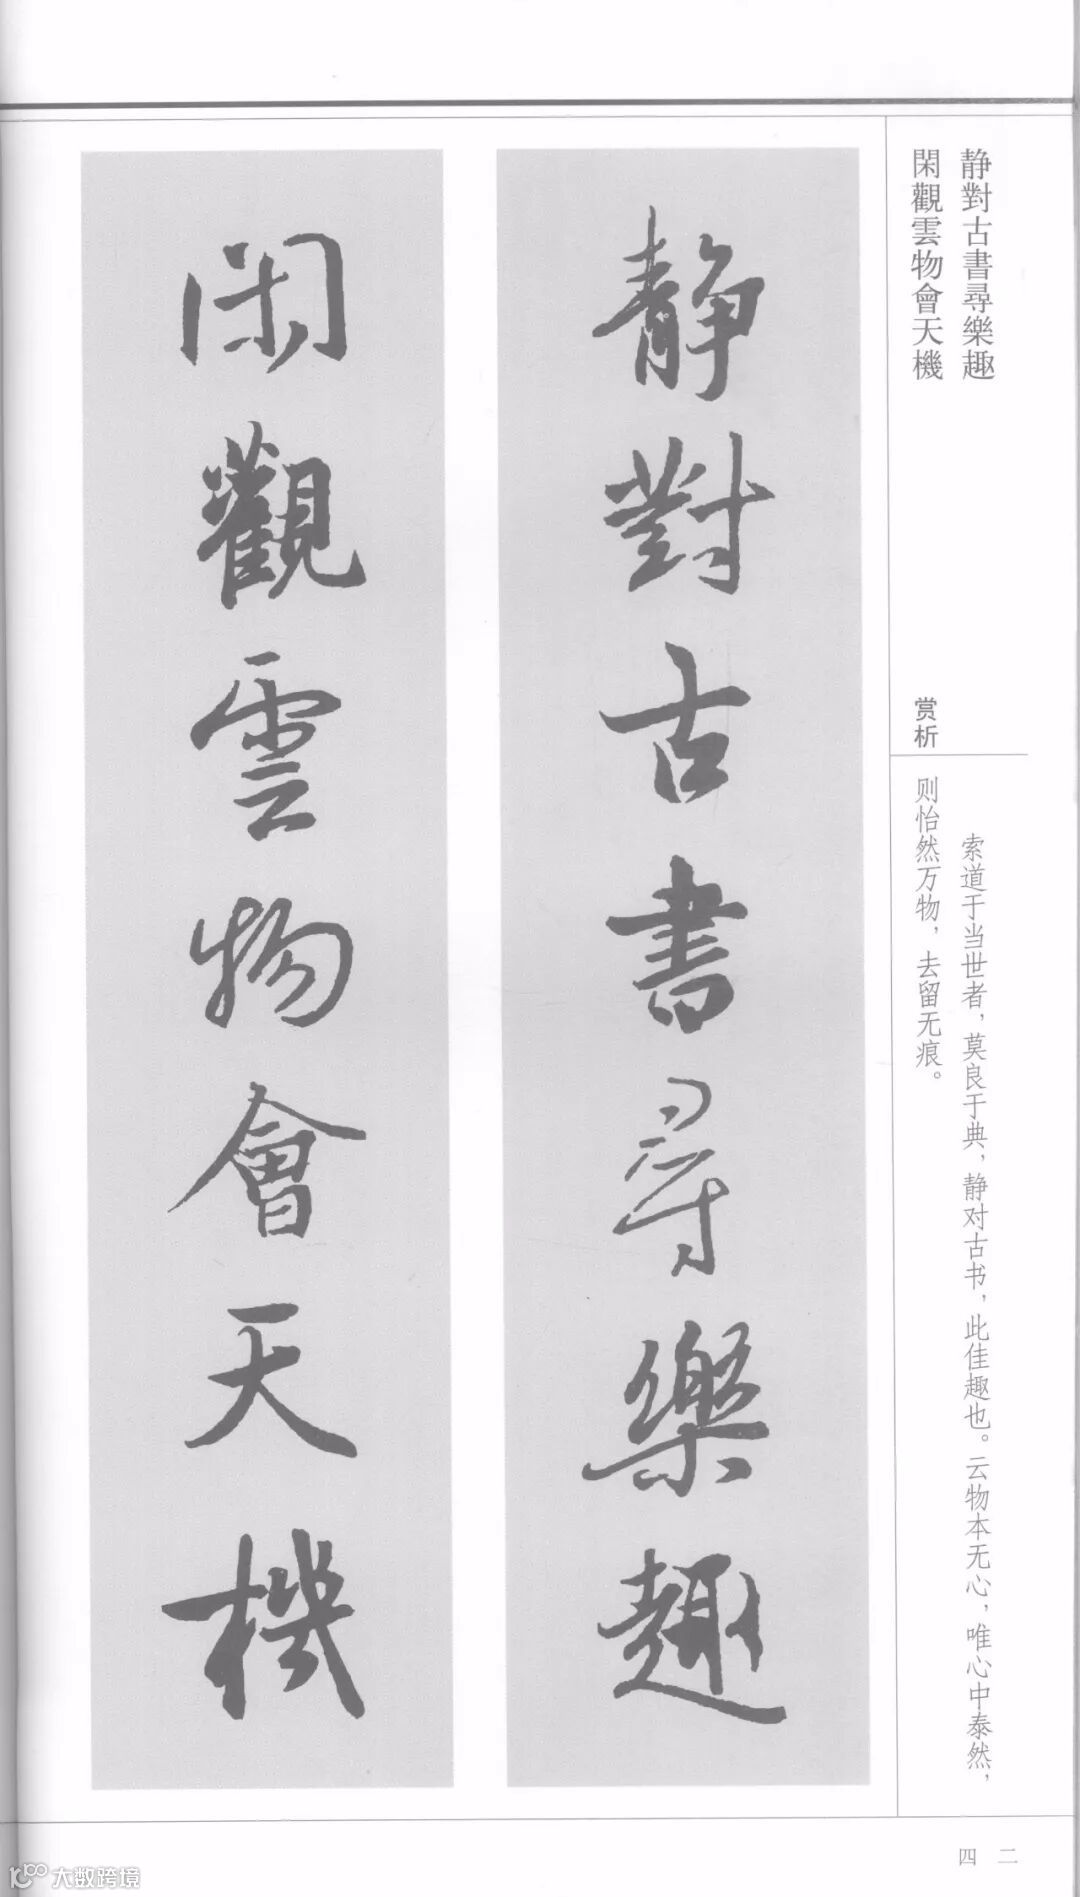 静對古書尋樂趣
閑觀雲物會天機
赏析
索道于当世者，莫良于典，静对古书，此佳趣也。云物本无心，唯心中泰然，
则怡然万物，去留无痕。
静對古書尋樂趣
閑觀雲物會天機
四二
大数跨境